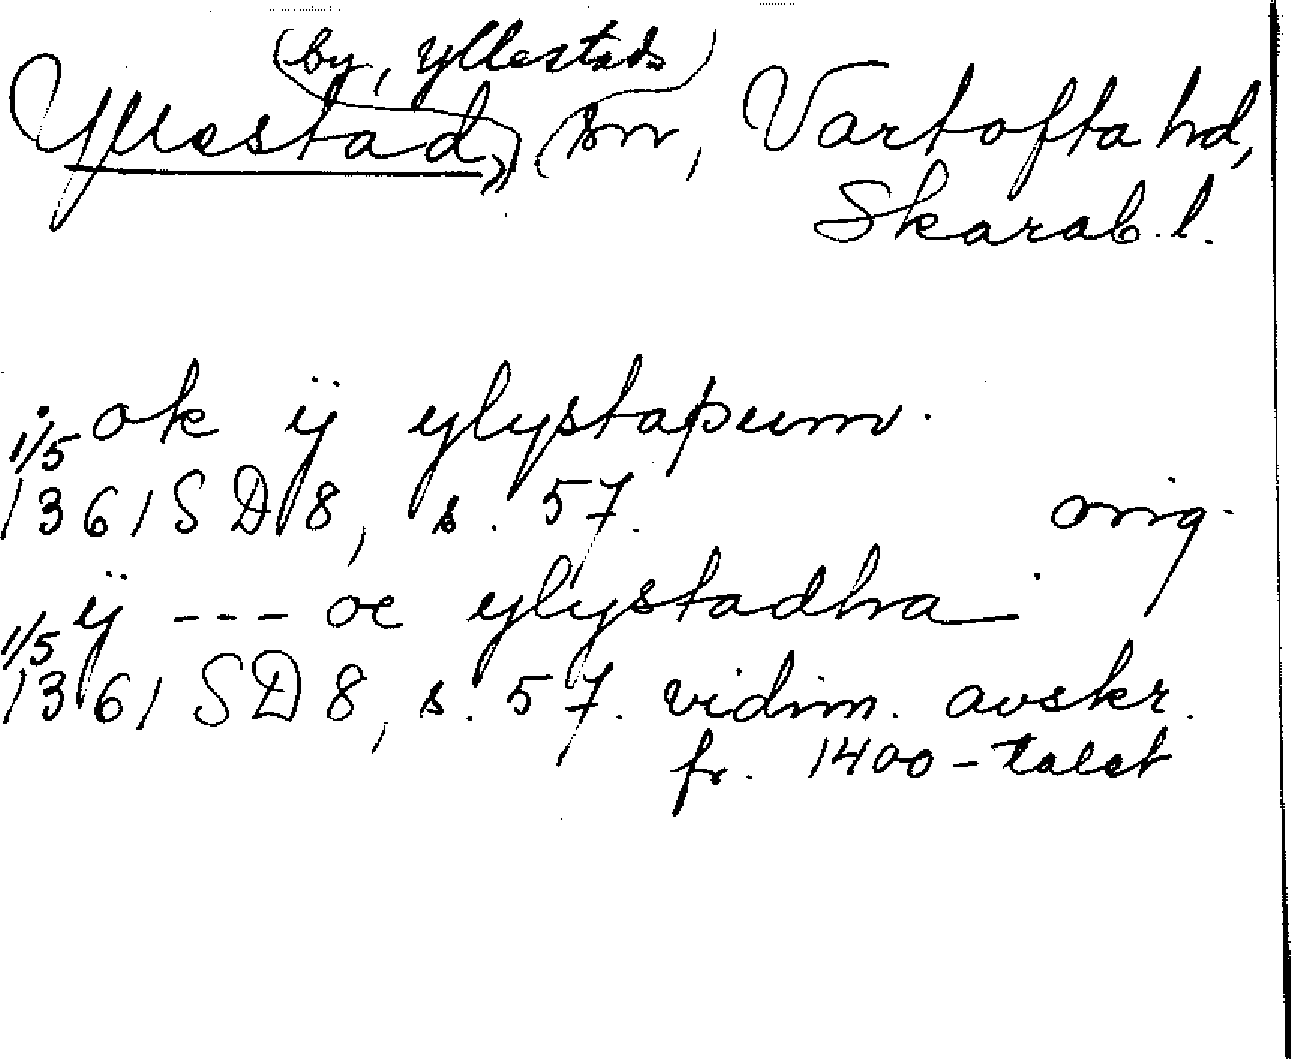 (by, Yllestads)
Yllestad, sn, Vartofta hd,
Skarab. l.
ok ÿ ylystaþum.
1/5 1361 SD 8, s. 57. orig.
ÿ --- oc ylystadha
1/5 1361 SD 8, s. 57. vidim. avskr.
fr. 1400-talet